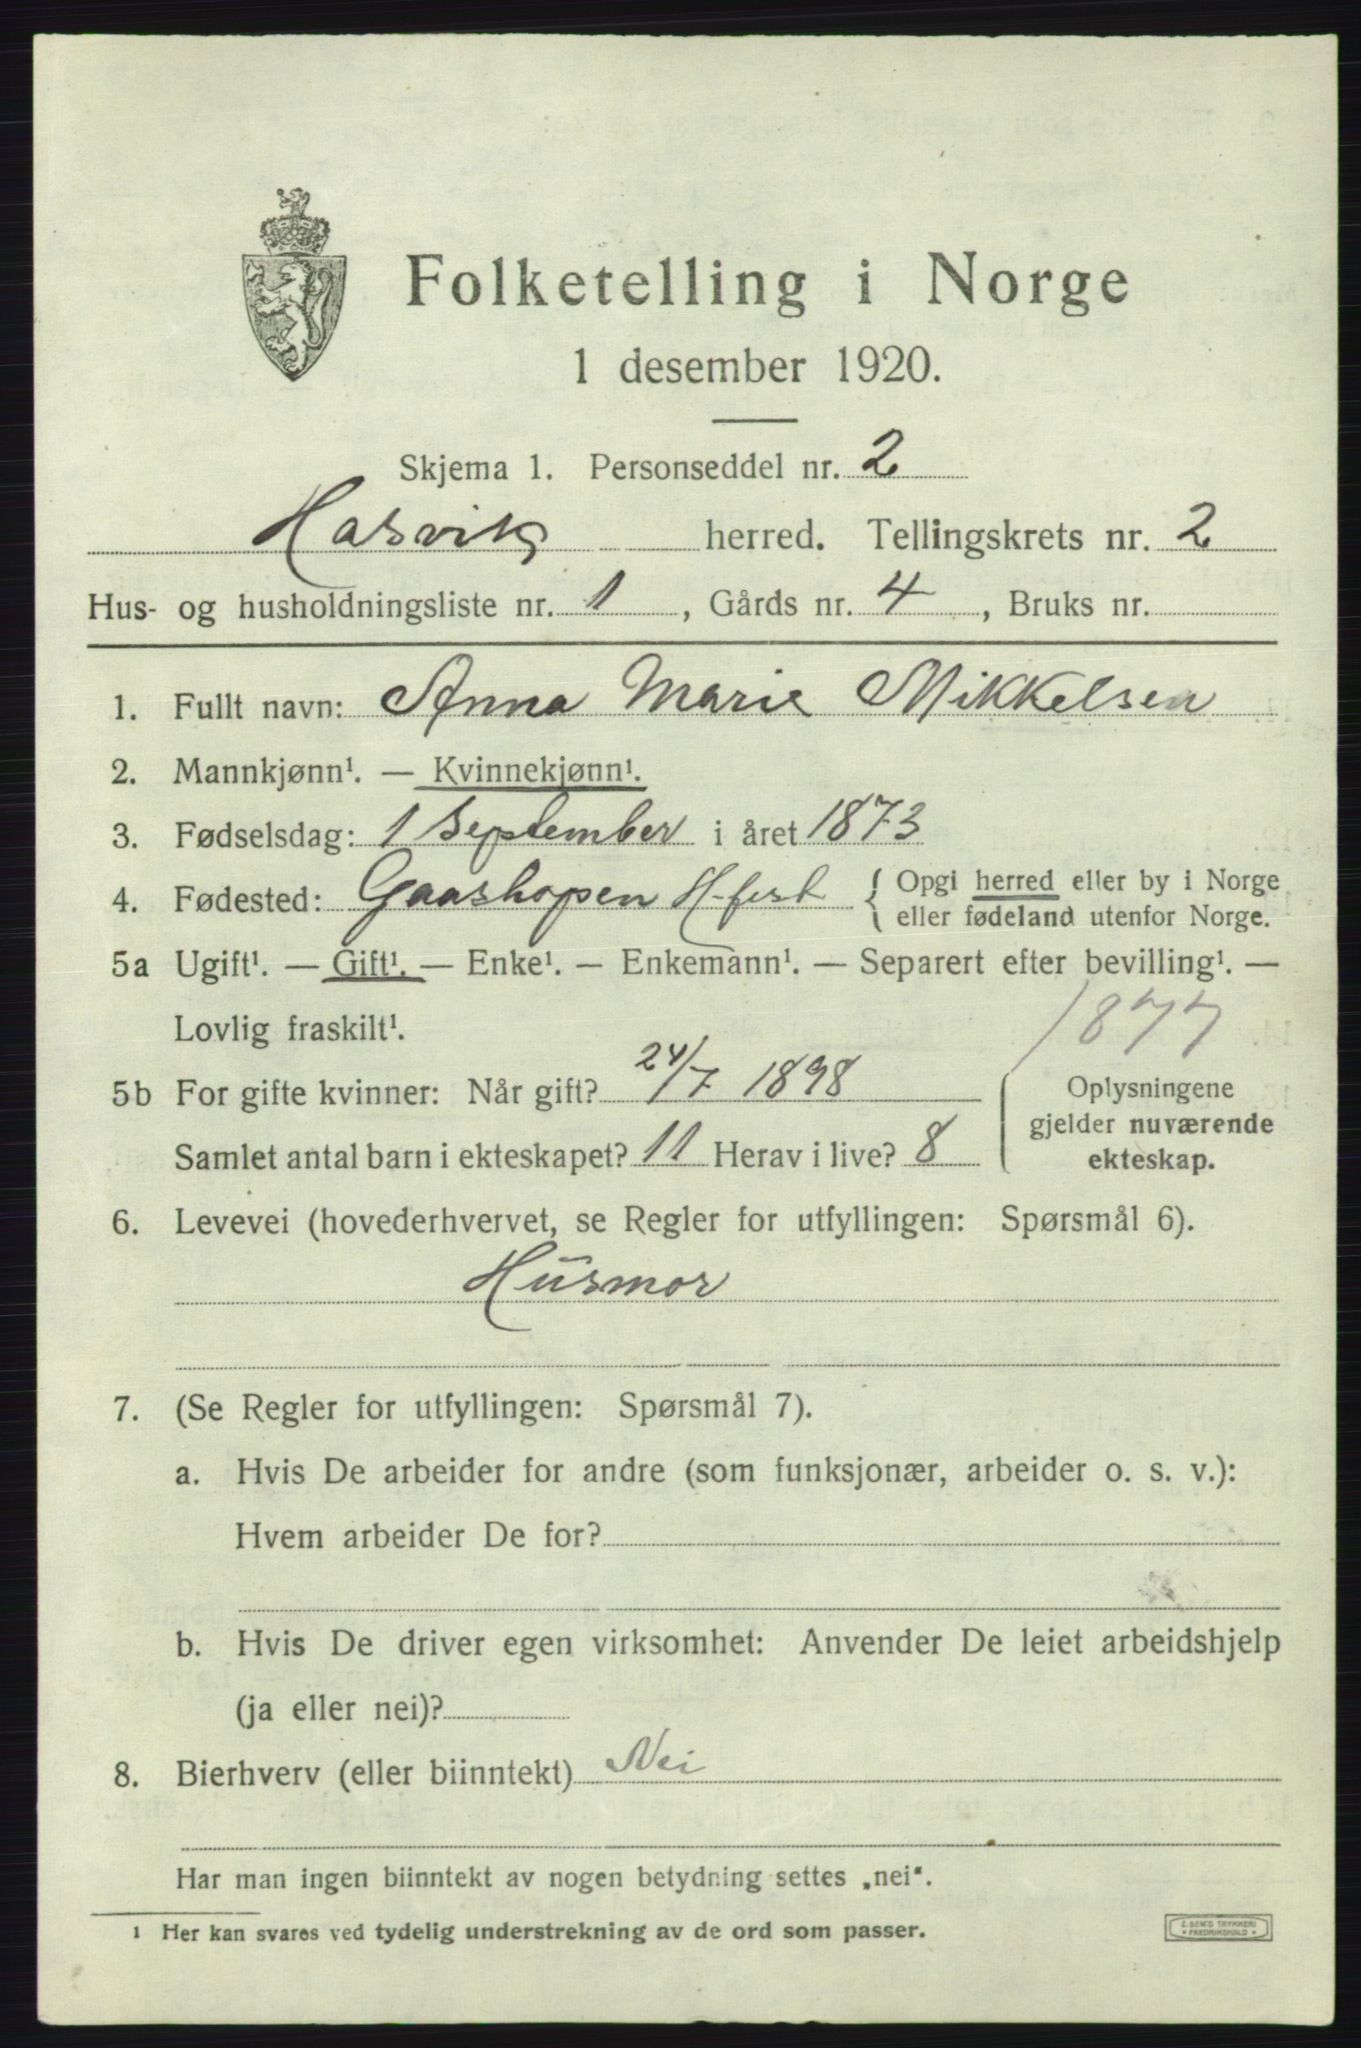 Folketelling i Norge
1 desember 1920.
Skjema 1. Personseddel nr. 2
Hasvik herred. Tellingskrets nr. 2
Hus- og husholdningsliste nr. 1, Gårds nr. 4, Bruks nr.
1. Fullt navn: Anna Marie Mikkelsen
2. Mannkjønn¹. — Kvinnekjønn¹.
3. Fødselsdag: 1 September i året 1873
4. Fødested: Gaashopen H-fest { Opgi herred eller by i Norge
eller fødeland utenfor Norge.
5a Ugift¹. — Gift¹. — Enke¹. — Enkemann¹. — Separert efter bevilling¹. —
Lovlig fraskilt¹.
1877
5b For gifte kvinner: Når gift? 24/7 1898
Samlet antal barn i ekteskapet? 11 Herav i live? 8
Oplysningene
gjelder nuværende
ekteskap.
6. Levevei (hovederhvervet, se Regler for utfyllingen: Spørsmål 6).
Husmor
7. (Se Regler for utfyllingen: Spørsmål 7).
a. Hvis De arbeider for andre (som funksjonær, arbeider o. s. v.):
Hvem arbeider De for?
b. Hvis De driver egen virksomhet: Anvender De leiet arbeidshjelp
(ja eller nei)?
8. Bierhverv (eller biinntekt) Nei
Har man ingen biinntekt av nogen betydning settes „nei“.
¹ Her kan svares ved tydelig understrekning av de ord som passer.
E. SEM'S TRYKKERI
FREDRIKSHALD